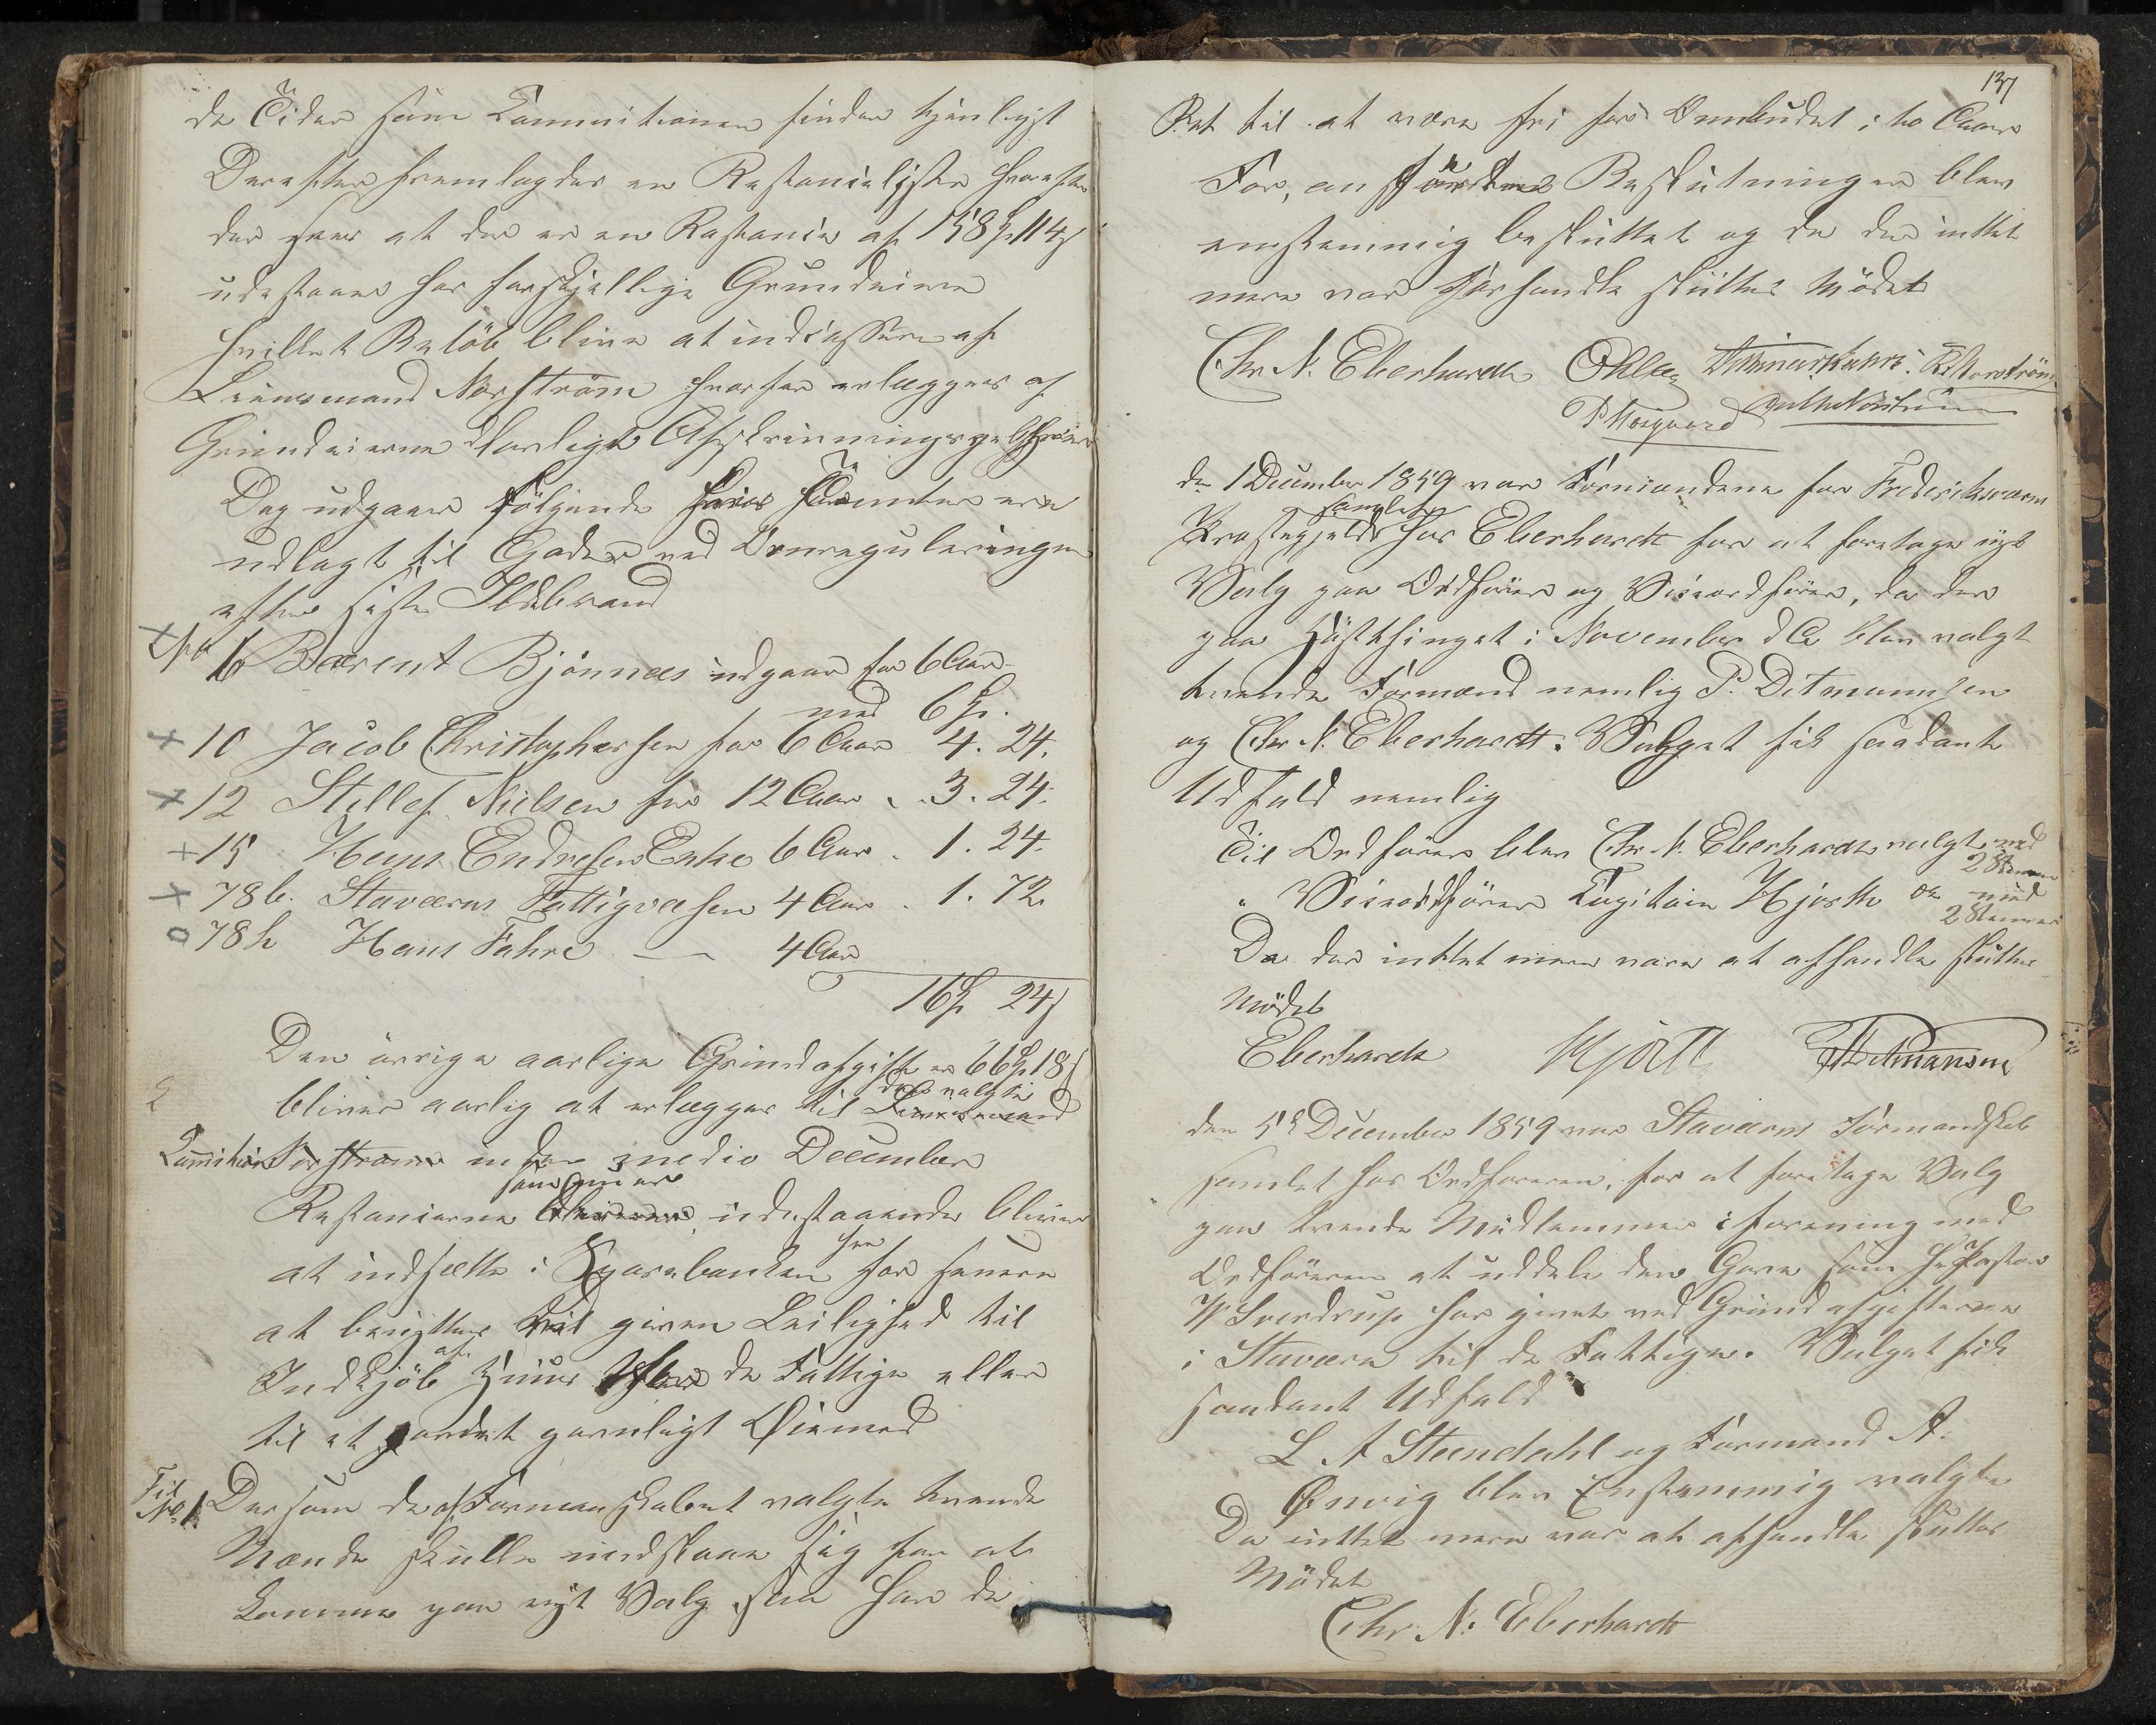 de Tider som Commitionen finder tjenligst
Derefter fremlagdes en Restanceliste hvorefter
der sees at der er en Restance af 158 114
udestaaende hos forskjellige Grundeiere
hvilket Beløb bliver at indcassere af
Lensmand Norstrøm hvorfor erlægges af
Grundeierne
Dog udgaar følgende Tomter ere
udlagt til Gader ved Omreguleringen
efter siste Ildebrand
No 6 Bærent Bjönnæs udgaar for 6 Aar
med 6
10 Jacob Christophersen for 6 Aar 4. 24.
12 Stellef Nielsen for 12 Aar 3. 24.
15 Hans Endresens Enke 6 Aar 1. 24.
78b. Staværns Fattigvæsen 4 Aar 1. 72.
78h Hans Fahre 4 Aar
16 24
Den øvrige aarlige Grundafgift er 66 18
den valgte
bliver aarlig at erlægges til Lensmand
Comition Norstrøm inden medio December
Restancerne udestaaende bliver
at indsætte i Sparebanken for senere
at benyttes ved given Leilighed til
Indkjøb af Huus de Fattige eller
til et andet gavnligt Øiemed
Til
No 1 Dersom de af Formanskabet valgte tvende
Mænd skulle undslaae sig for at
komme paa nyt Valg saa har de
137
Ret til at være fri for Ombudet i to Aar
For, anførte Beslutninger blev
enstemmig besluttet og da der intet
mere var forhandle sluttes Mødet
Chr. N. Eberhardt
P Norgaard
den 1 December 1859 var Formændene for Frederiksværn
samlet
Præstegjeld hos Eberhardt for at foretage nyt
Valg paa Ordfører og Viceordfører, da der
paa Høstthinget i November d A blev valgt
tvende Formænd nemlig P. Ditmannsen
og Chr N. Eberhardt. Valget fik saadant
Udfald nemlig
Til Ordfører blev Chr. N. Eberhardt valgt med
2 Stemmer
" Viceordfører Capitain Hjorth med
2 Stemmer
Da der intet mere være at afhandle sluttes
Mødet
Eberhardt Hjorth
den 5te December 1859 var Staværns Formandskab
samlet hos Ordføreren, for at foretage Valg
paa tvende Medlemmer i forening med
Ordføreren at uddele den Gave som Hr Pastor
Sverdrup har givet ved Grundafgifterne
i Staværn til de Fattige. Valget fik
saadant Udfald
L A Steendahl og Formand A.
Ønvig blev Enstemmig valgte
Da intet mere var at afhandle sluttes
Mødet
Chr. N. Eberhardt